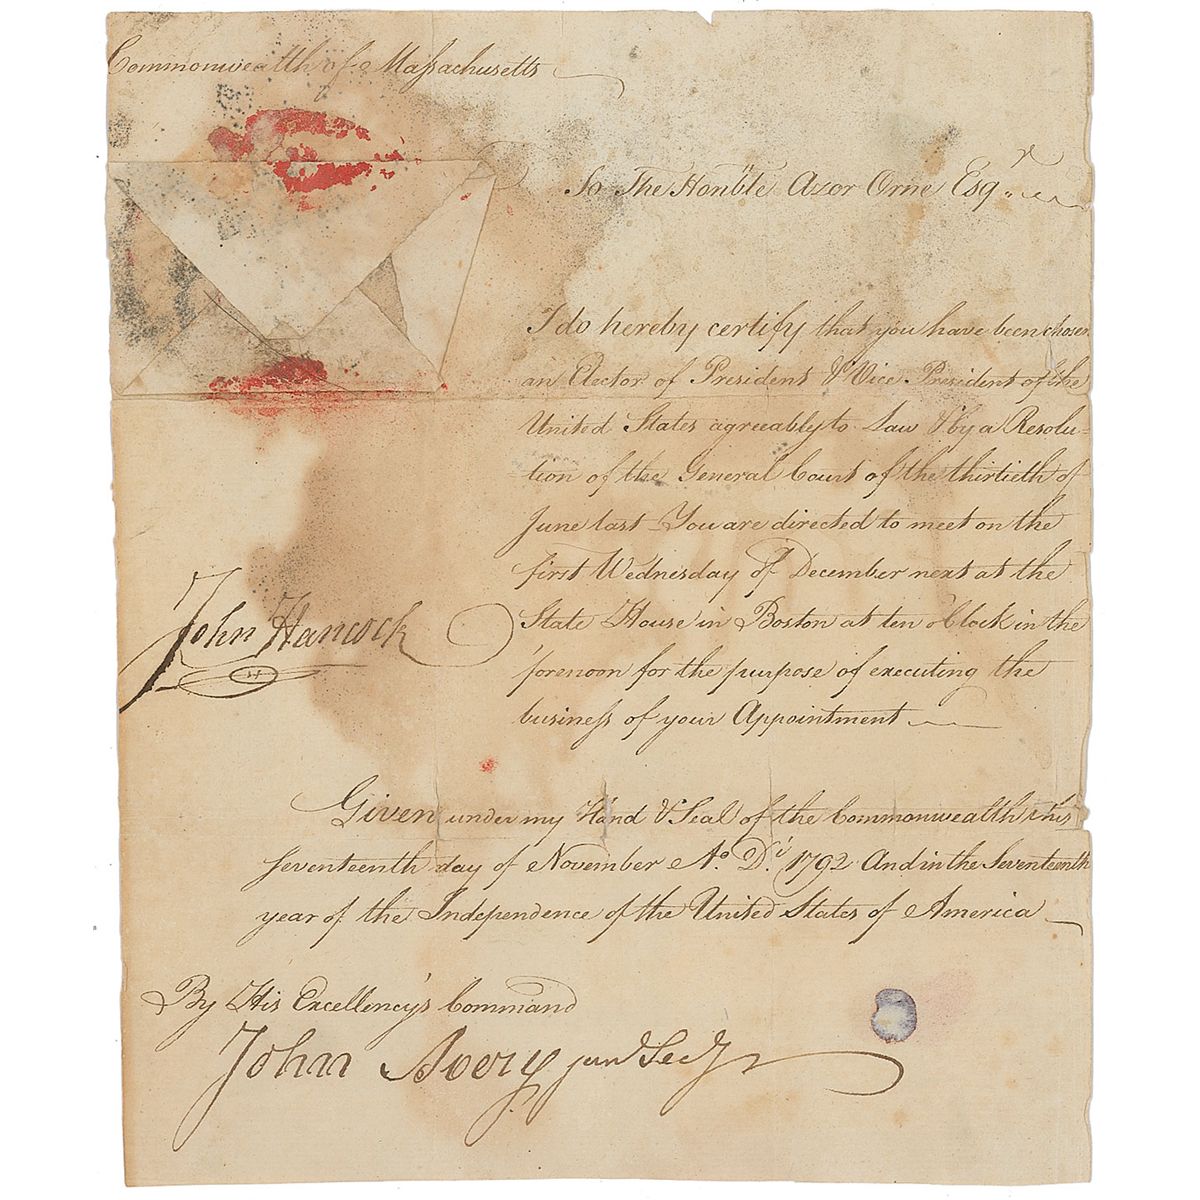 Commonwealth of Massachusetts
To The Hon'ble Azor Orne Esqr.
I do hereby certify that you have been chosen
an Elector of President & Vice President of the
United States agreeably to Law & by a Resolu-
tion of the General Court of the thirtieth of
June last You are directed to meet on the
first Wednesday of December next at the
State House in Boston at ten o'Clock in the
forenoon for the purpose of executing the
business of your Appointment
John Hancock
Given under my Hand & Seal of the Commonwealth this
seventeenth day of November Ao. Di. 1792 And in the Seventeenth
year of the Independence of the United States of America
By His Excellency's Command
John Avery junr Secy